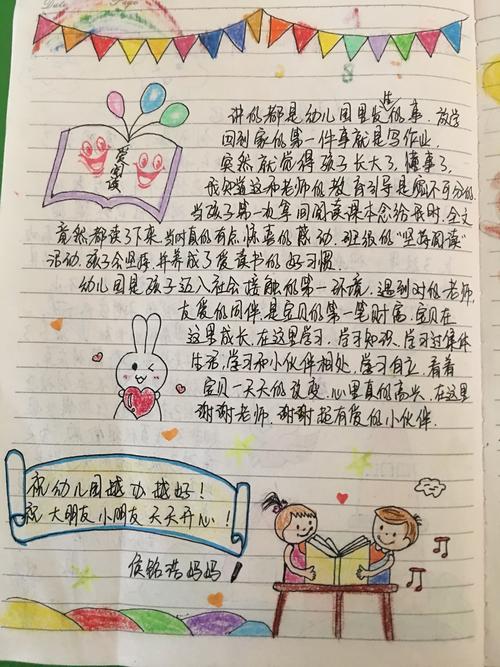 Date
Page
爱阅读
讲的都是幼儿园里发生的事。放学
回到家的第一件事就是写作业,
突然就觉得孩子长大了,懂事了,
我知道这和老师的教育引导是分不可分的。
当孩子第一次拿回阅读课本念给我听,全文
竟然都读了下来,当时真的有点惊喜的感动,班级的“坚持阅读”
活动,孩子会坚持,并养成了爱读书的好习惯.
幼儿园是孩子迈入社会接触的第一环境,遇到好的老师,
友爱的同伴,是宝贝的第一笔财富,宝贝在
这里成长,在这里学习,学习知识、学习过集体
生活,学习和小伙伴相处,学习自立,看着
宝贝一天天的改变,心里真的高兴,在这里
谢谢老师,谢谢超有爱的小伙伴.
祝幼儿园越办越好!
祝大朋友小朋友天天开心!
侯铭浩妈妈!